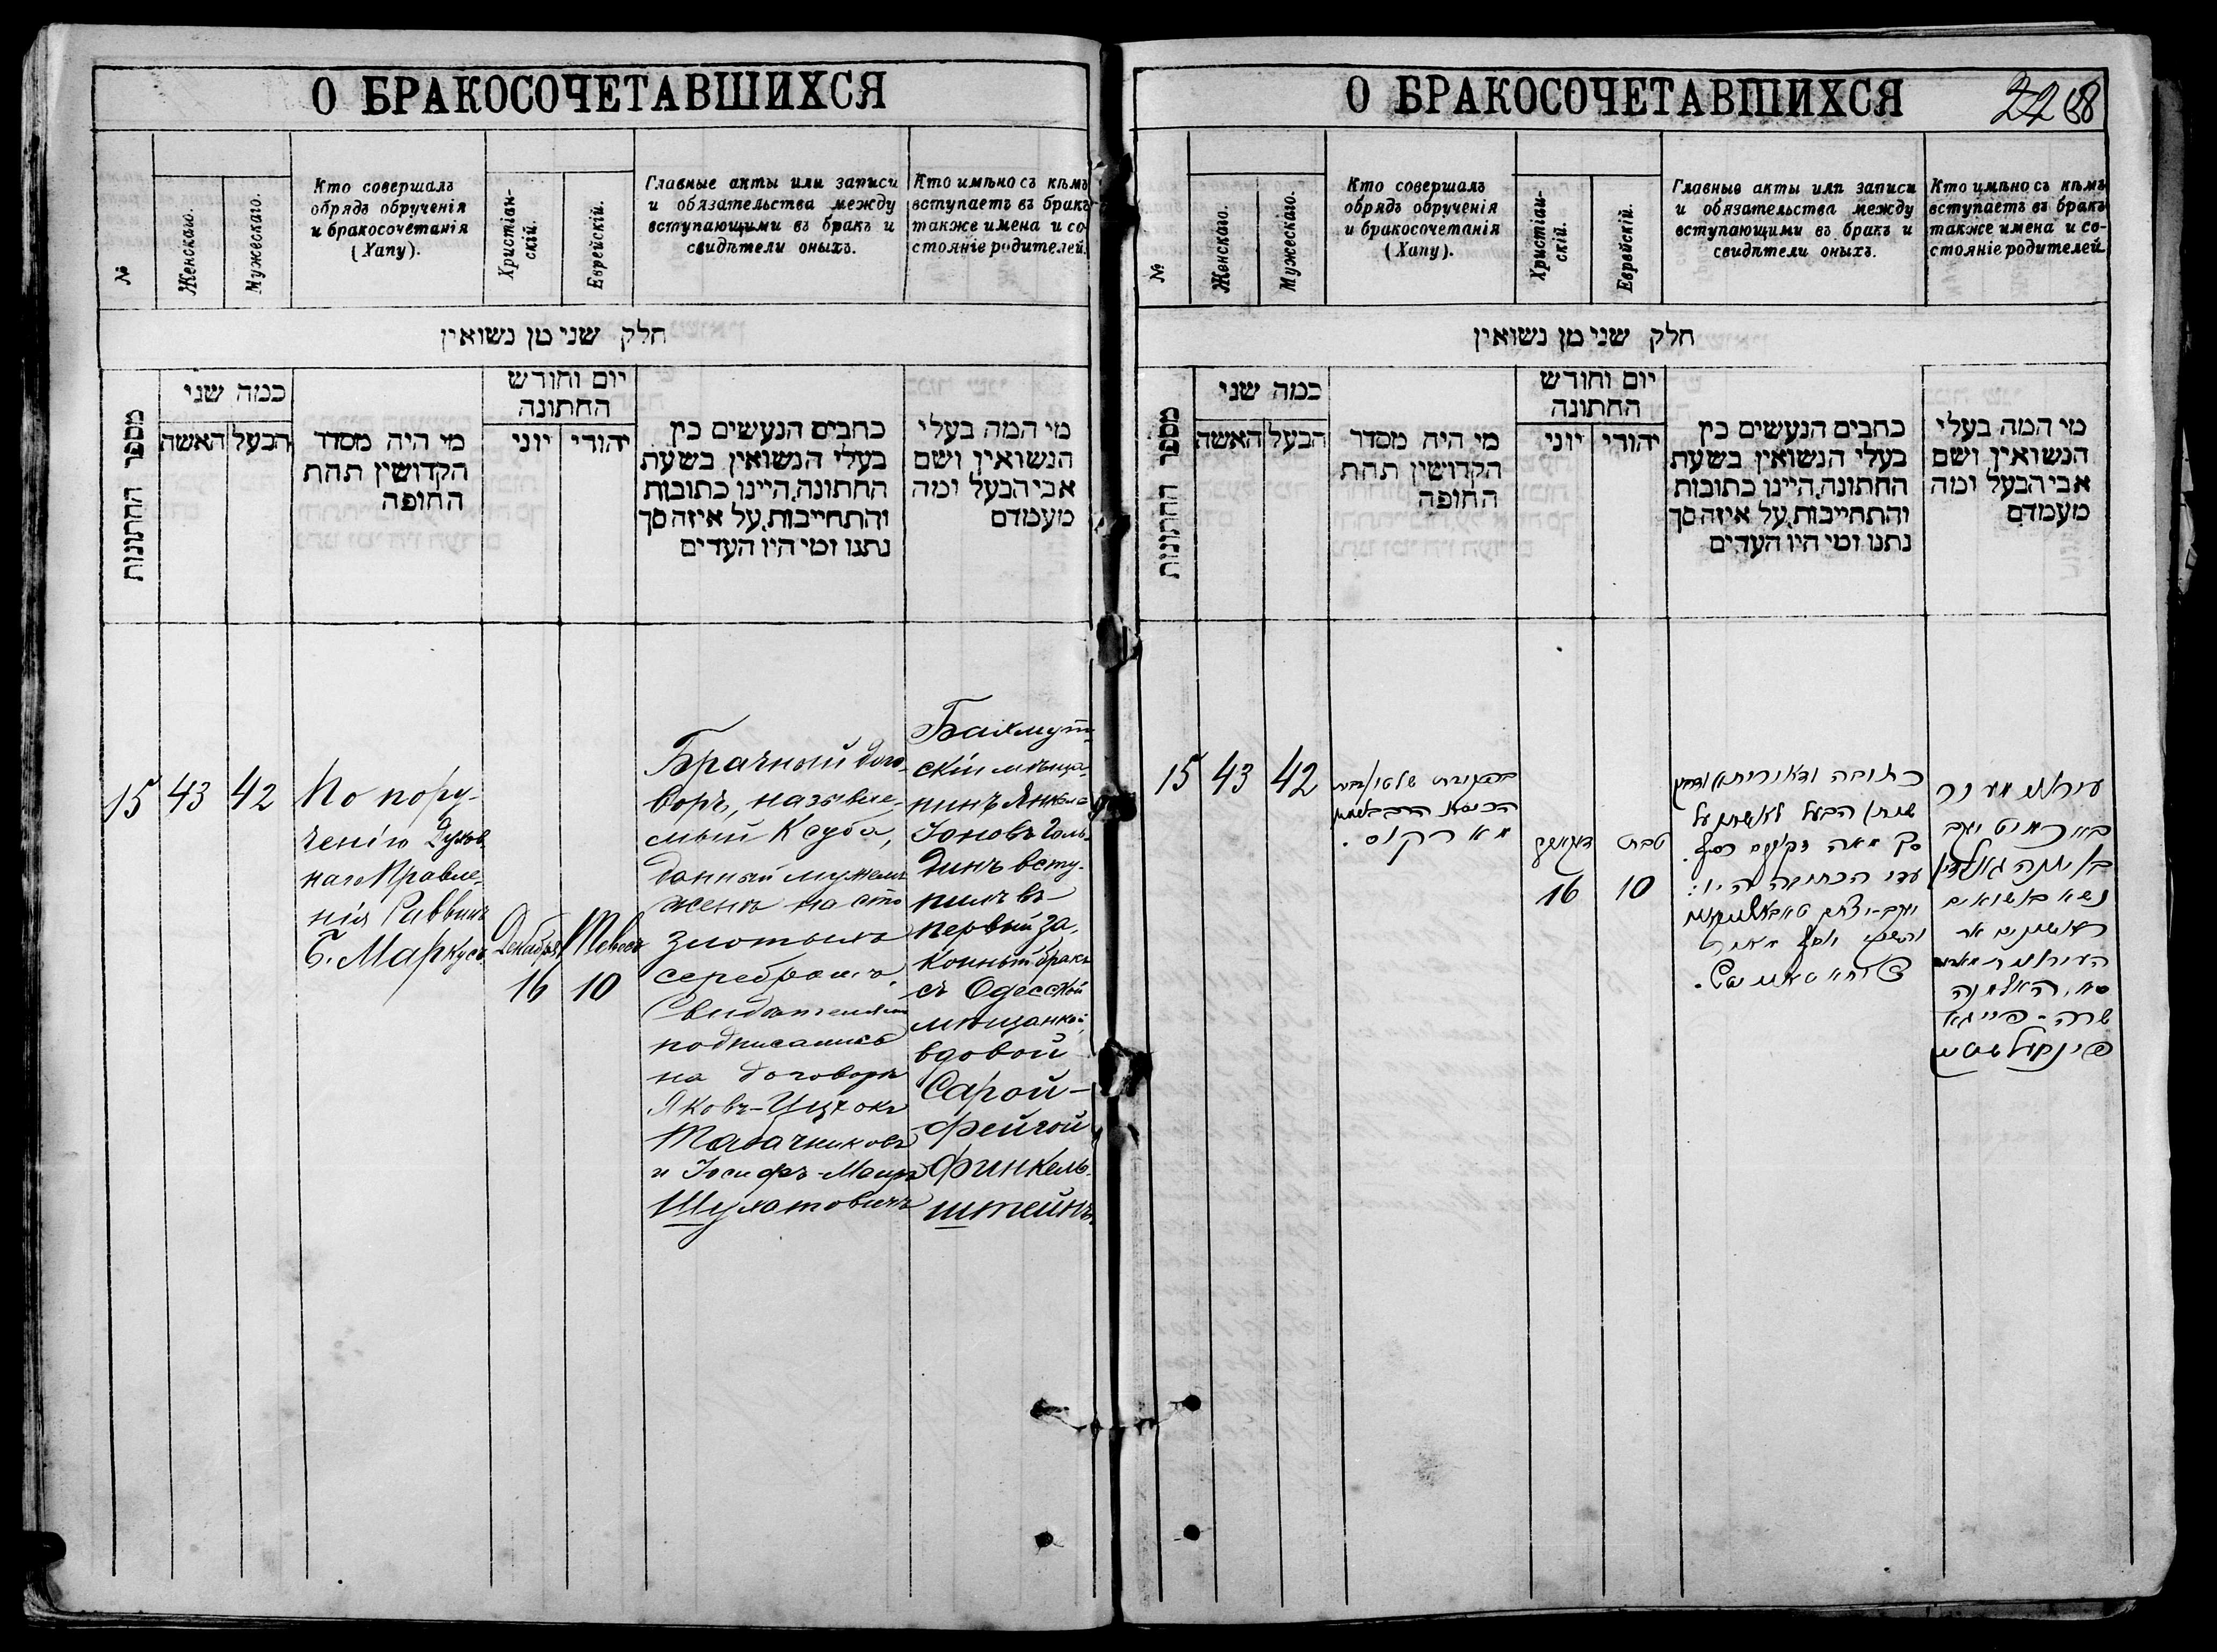 О БРАКОСОЧЕТАВШИХСЯ
№
Женскаго.
Мужескаго.
Кто совершалъ
обрядъ обрученія
и бракосочетанія
(Хапу).
Христіан-
скій.
Еврейскій.
Главные акты или записи
и обязательства между
вступающими въ бракъ и
свидѣтели оныхъ.
Кто имѣно съ кѣмъ
вступаетъ въ бракъ
также имена и со-
стояніе родителей.
חלק שני מן נשואין
מספר החתונות
כמה שני
האשה
הבעל
מי היה מסדר
הקדושין תחת
החופה
יום וחודש
החתונה
יוני
יהודי
כתבים הנעשים בין
בעלי הנשואין בשעת
החתונה, היינו כתובות
והתחייבות, על איזה סך
נתנו ומי היו העדים
מי המה בעלי
הנשואין ושם
אבי הבעל ומה
מעמדם
15
43
42
По пору-
ченію Духов.
наго Правле-
нія Раввинъ
Б. Маркусъ.
Декабря
16
Тевесъ
10
Брачный дого-
воръ, называе-
мый Ксуба,
данный мужемъ
женѣ на сто
злотыхъ
серебромъ.
Свидѣтелями
подписались
на договорѣ
Яковъ-Ицхокъ
Табачниковъ
и Іосифъ-Меиръ
Шухатовичъ
Бахмут-
скій мѣща-
нинъ Янкель
Іоновъ Голь-
динъ всту-
пилъ въ
первый за-
конный бракъ
съ Одесской
мѣщанкой,
вдовой
Сарой-
Фейгой
Финкель-
штейнъ.
О БРАКОСОЧЕТАВШИХСЯ
№
Женскаго.
Мужескаго.
Кто совершалъ
обрядъ обрученія
и бракосочетанія
(Хапу).
Христіан-
скій.
Еврейскій.
Главные акты или записи
и обязательства между
вступающими въ бракъ и
свидѣтели оныхъ.
Кто имѣно съ кѣмъ
вступаетъ въ бракъ
также имена и со-
стояніе родителей
חלק שני מן נשואין
מספר החתונות
כמה שני
האשה
הבעל
מי היה מסדר
הקדושין תחת
החופה
יום וחודש
החתונה
יוני
יהודי
כתבים הנעשים בין
בעלי הנשואין בשעת
החתונה, היינו כתובות
והתחייבות, על איזה סך
נתנו ומי היו העדים
מי המה בעלי
הנשואין ושם
אבי הבעל ומה
מעמדם
15
43
42
מארקוס.
16
טבת
10
כתובה
שנתן הבעל לאשתו על
סך מאה זקוקים כסף.
עדי הכתובה היו:
יעקב-יצחק
יוסף מאיר
עירוני
יעקב
בן יונה גאלדין
נשא בנשואים
ראשונים את
העירונית
האלמנה
שרה-פייגא
פינקעלשטיין